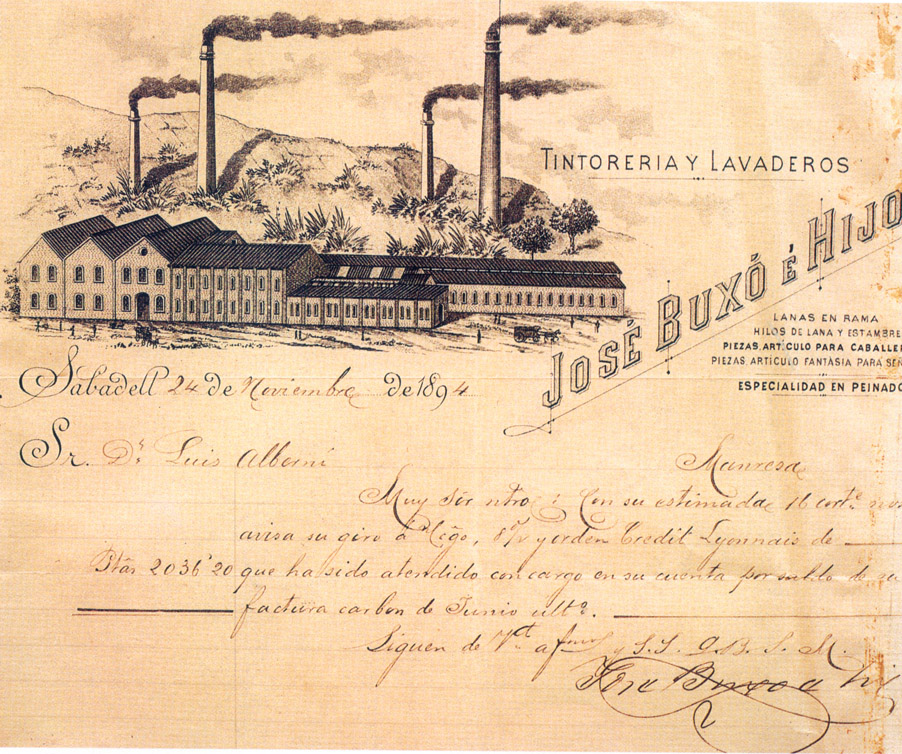 TINTORERIA Y LAVADEROS
JOSÉ BUXÓ É HIJO
LANAS EN RAMA
HILOS DE LANA Y ESTAMBRE
PIEZAS, ARTÍCULO PARA CABALLE
PIEZAS ARTÍCULO FANTASIA PARA SEÑ
ESPECIALIDAD EN PEINADO
Sabadell 24 de Noviembre de 1894
Sr. Dn. Luis Alberni
Manresa
Muy Sór ntro: Con su estimada 16 corte.
avisa su giro á y orden Credit Lyonnais de
Ptas 2036'20 que ha sido atendido con cargo en su cuenta por saldo de su
factura carbon de Junio ulto.
Siguen de Vd. afmos y S.S. Q.B.S.M.
José Buxó é Hi